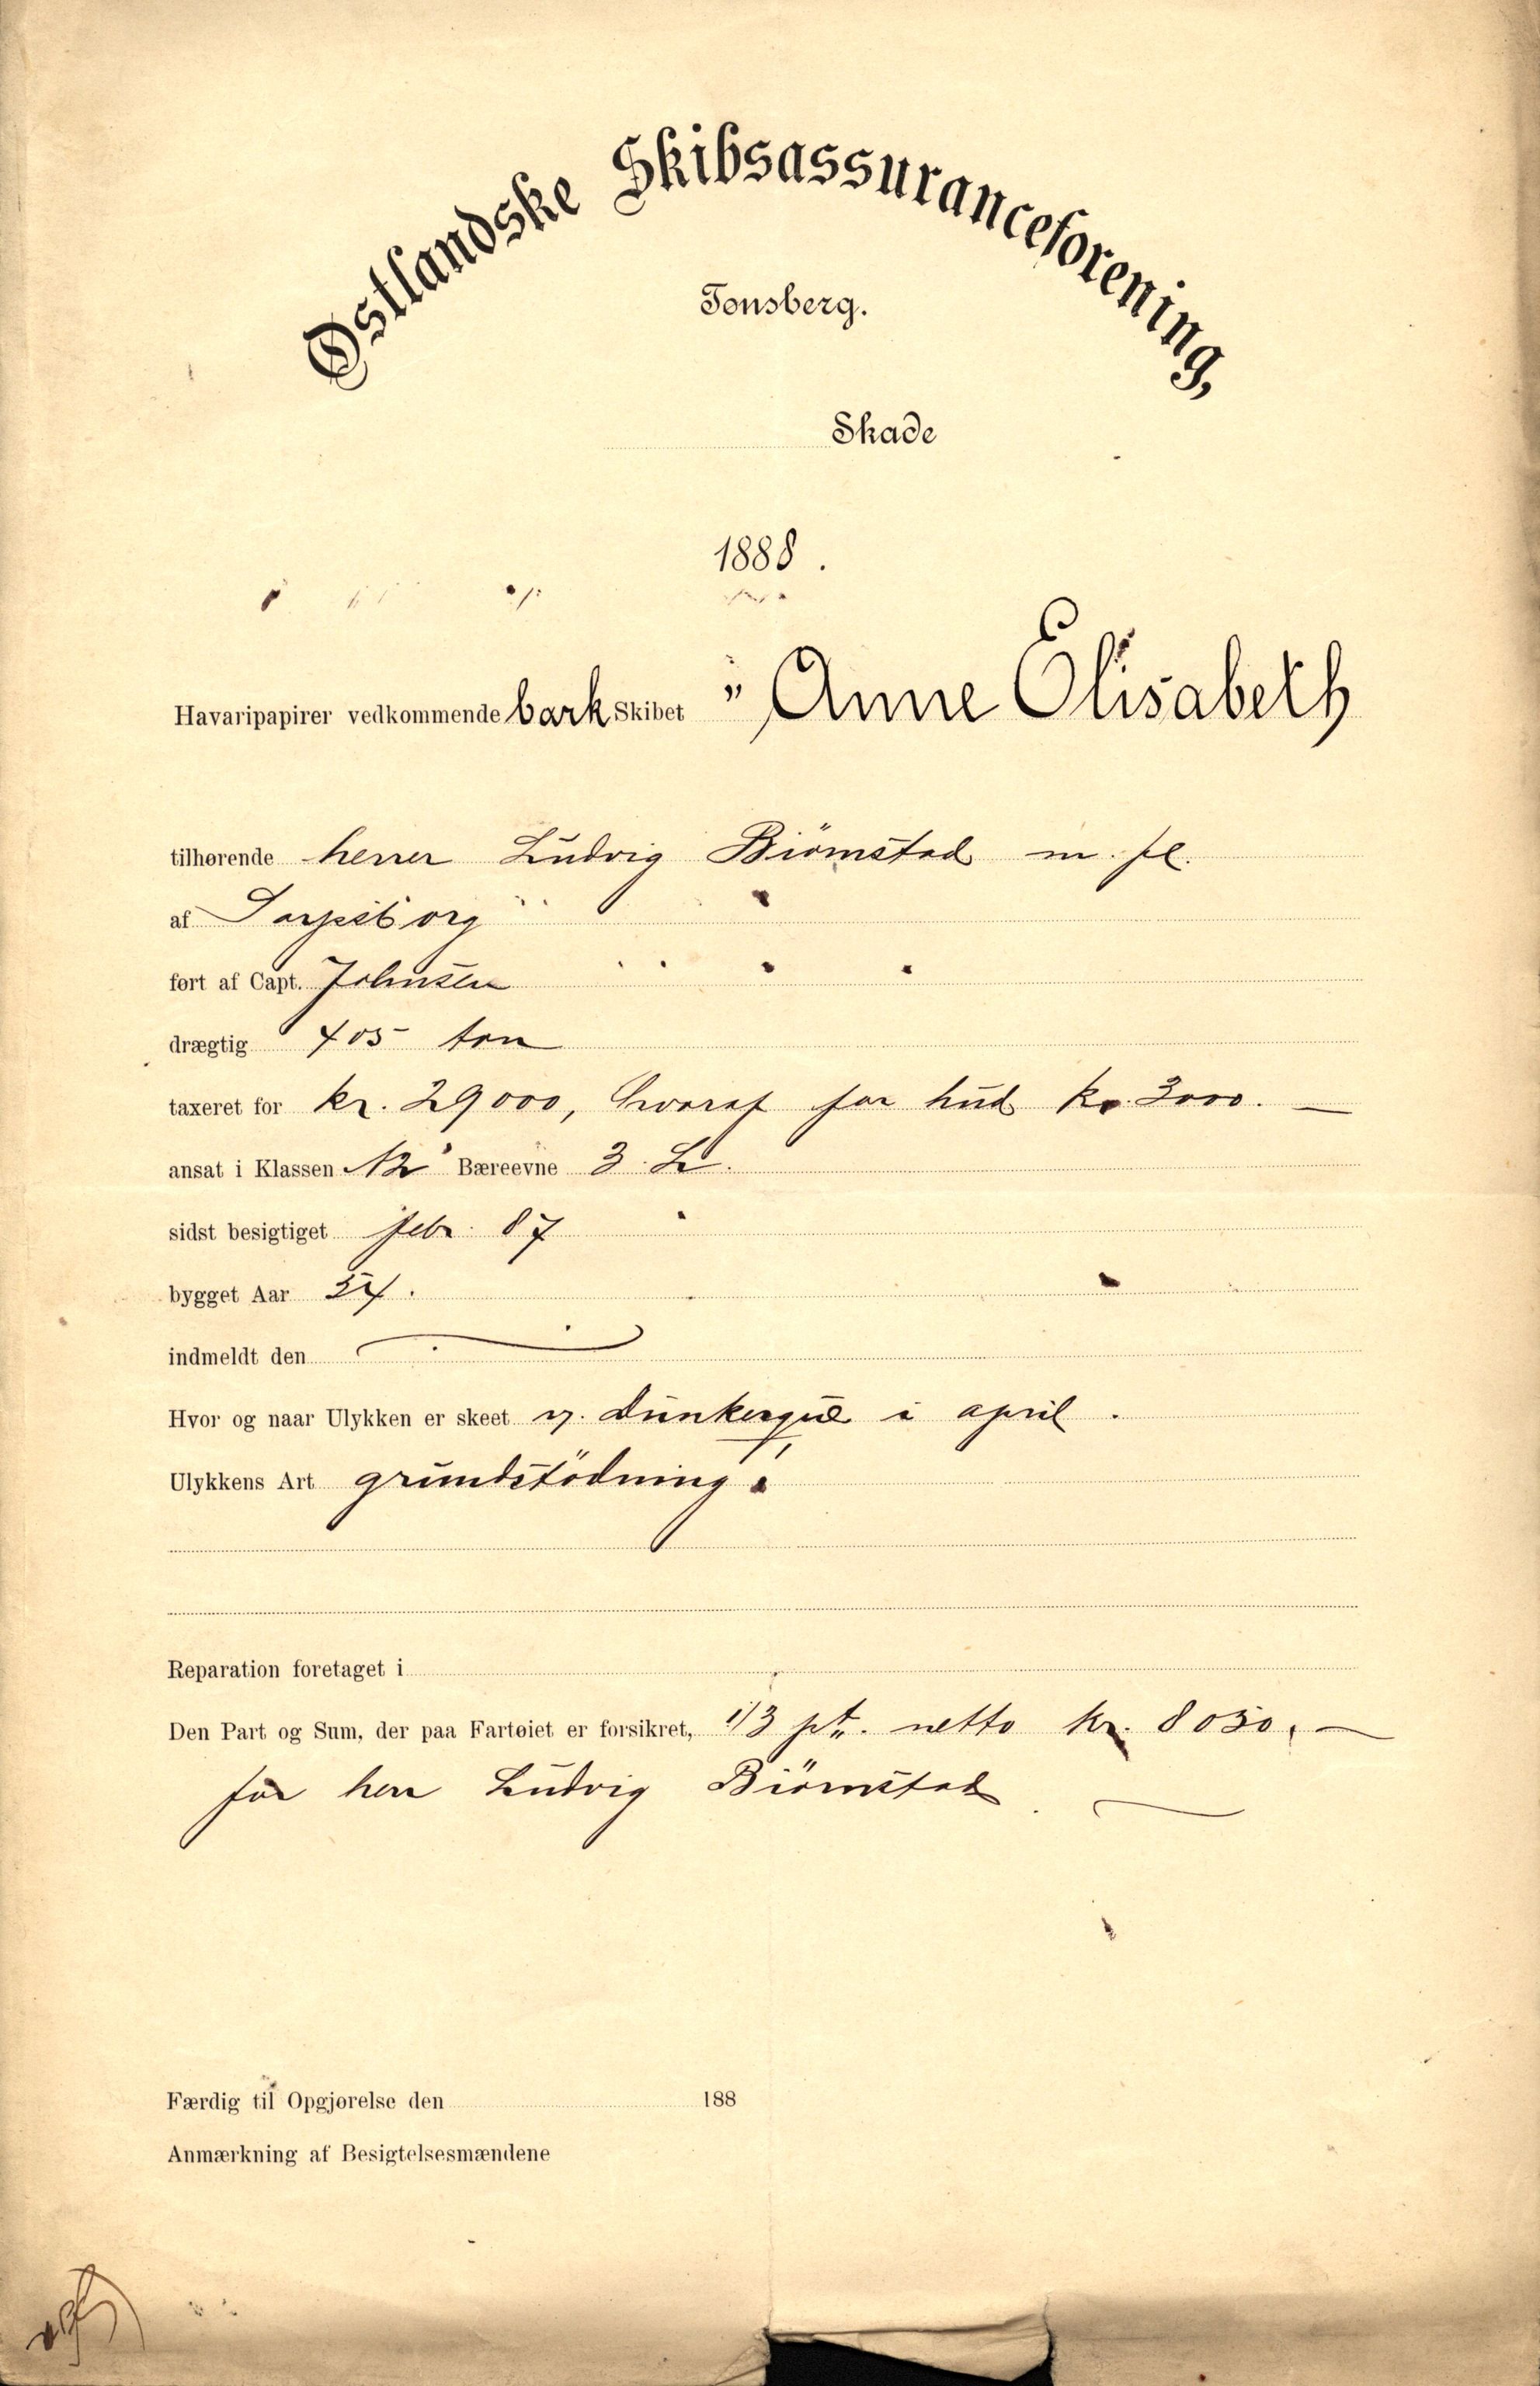 Østlandske Skibsassuranceforening,
Tønsberg.
Skade
1888.
Havaripapirer vedkommende bark Skibet „Anne Elisabeth"
tilhørende herrer Ludvig Biørnstad m. fl.
af Sarpsborg
ført af Capt. Johnsen
drægtig 405 ton
taxeret for kr. 29000, hvoraf for hud kr. 3000. —
ansat i Klassen A2 Bæreevne 3. L.
sidst besigtiget febr. 87
bygget Aar 54.
indmeldt den
Hvor og naar Ulykken er skeet v. Dunkerque i april.
Ulykkens Art grundstödning.
Reparation foretaget i
Den Part og Sum, der paa Fartøiet er forsikret, 1/3 pt. netto kr. 8050. —
for herr Ludvig Biørnstad
Færdig til Opgjørelse den 188
Anmærkning af Besigtelsesmændene